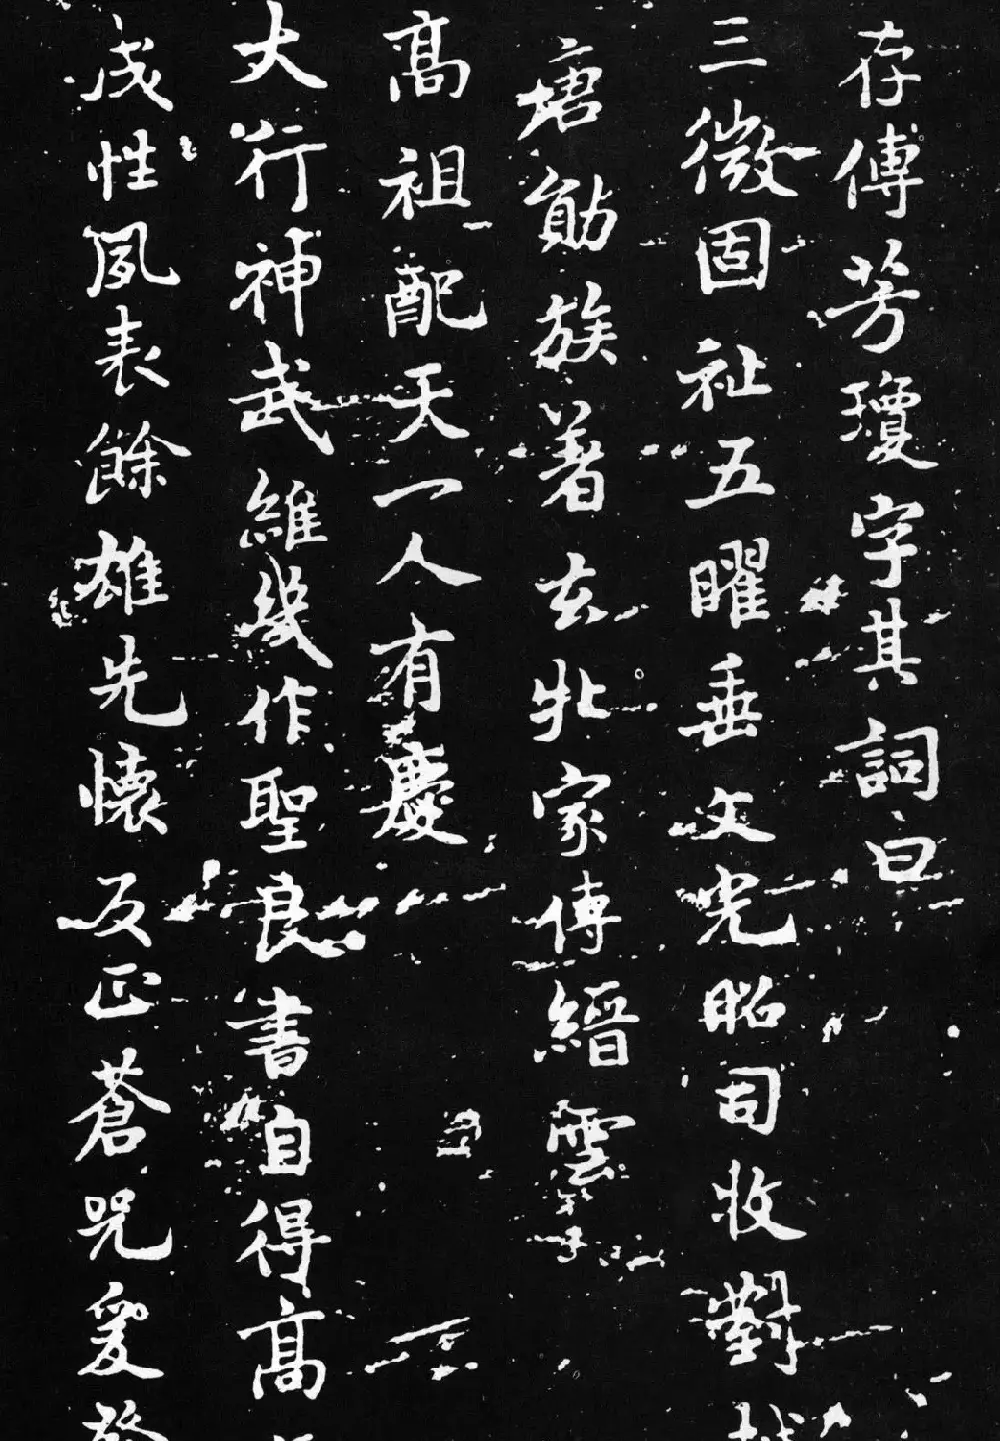 存傅芳瓊字其詞曰
三微固祉五曜垂文光昭司牧對越
唐勛族著玄牝家傅縉雲
高祖配天一人有慶
大行神武維幾作聖良書自得高
成性夙表餘雄先懷反正蒼兕爰發